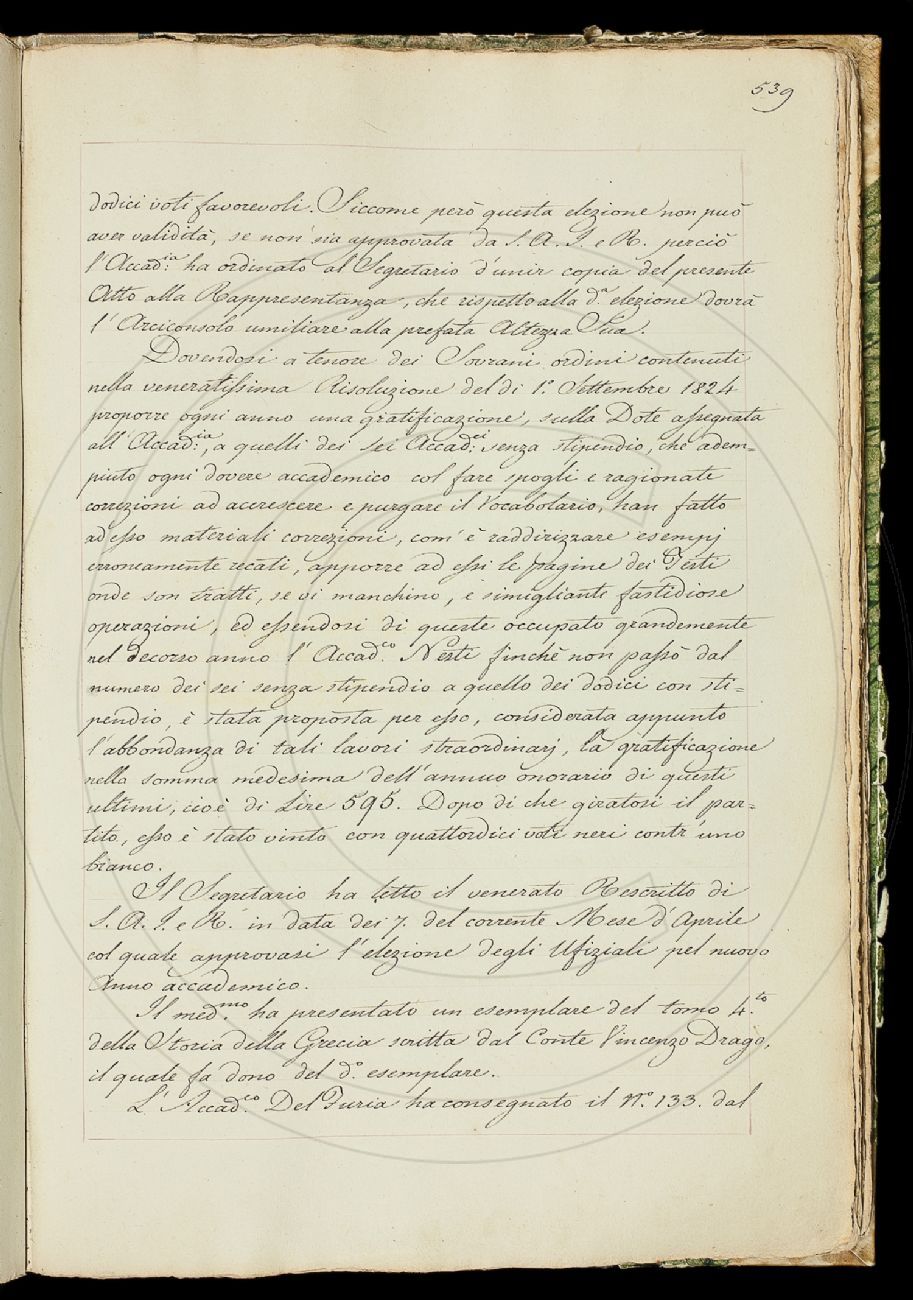 539
dodici voti favorevoli. Siccome però questa elezione non può
aver validità, se non sia approvata da S. A. I. e R. perciò
l'Accad.ia ha ordinato al Segretario d'unir copia del presente
Atto alla Rappresentanza, che rispetto alla d.a elezione dovrà
l'Arciconsolo umiliare alla prefata Altezza Sua.
Dovendosi a tenore dei Sovrani ordini contenuti
nella veneratissima Risoluzione del dì 1.o Settembre 1824
proporre ogni anno una gratificazione, sulla Dote assegnata
all'Accad.ia, a quelli dei sei Accad.ci senza stipendio, che adem=
piuto ogni dovere accademico col fare spogli e ragionate
correzioni ad accrescere e purgare il Vocabolario, han fatto
ad esso materiali correzioni, com'è raddirizzare esempj
erroneamente recati, apporre ad essi le pagine dei Testi
onde son tratti, se vi manchino, e simiglianti fastidiose
operazioni, ed essendosi di queste occupato grandemente
nel decorso anno l'Accad.co Nesti finchè non passò dal
numero dei sei senza stipendio a quello dei dodici con sti=
pendio, è stata proposta per esso, considerata appunto
l'abbondanza di tali lavori straordinarj, la gratificazione
nella somma medesima dell'annuo onorario di questi
ultimi, cioè di Lire 595. Dopo di che giratosi il par=
tito, esso è stato vinto con quattordici voti neri contr'uno
bianco.
Il Segretario ha letto il venerato Rescritto di
S. A. I. e R. in data dei 7. del corrente Mese d'Aprile
col quale approvasi l'elezione degli Ufiziali pel nuovo
Anno accademico.
Il med.mo ha presentato un esemplare del tomo 4.to
della Storia della Grecia scritta dal Conte Vincenzo Drago,
il quale fa dono del d.o esemplare.
L'Accad.co Del Furia ha consegnato il N.o 133. dal